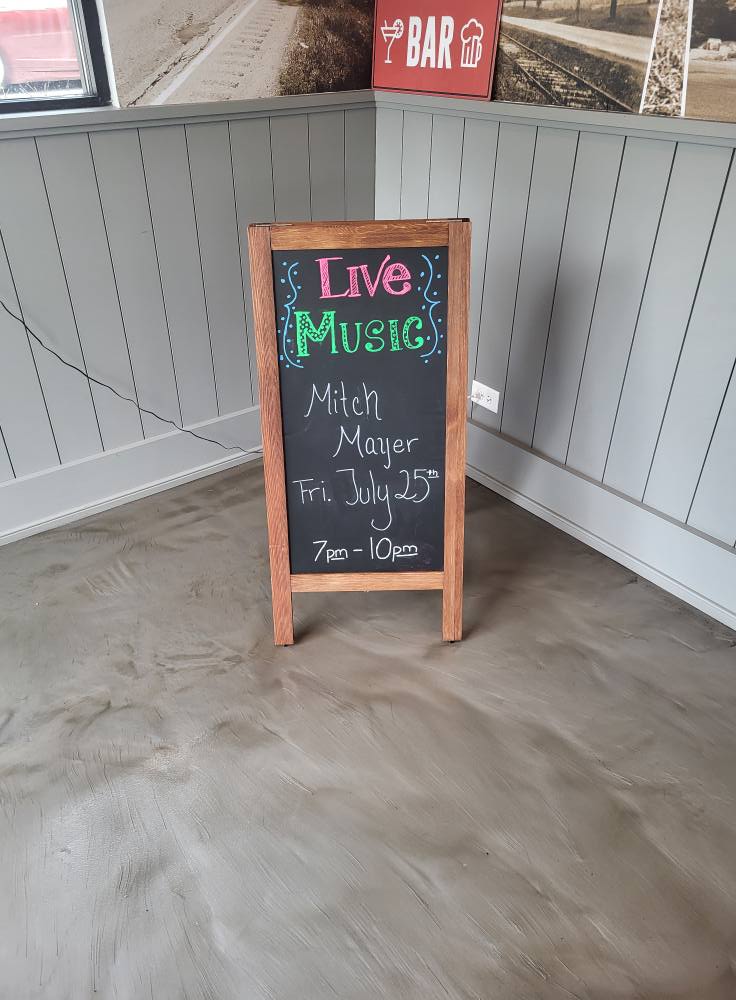 BAR
Live
Music
Mitch
Mayer
Fri. July 25th
7pm - 10pm